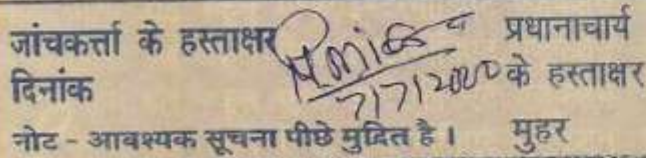 जांचकर्त्ता के हस्ताक्षर प्रधानाचार्य
दिनांक 7/7/2020 के हस्ताक्षर
नोट - आवश्यक सूचना पीछे मुद्रित है । मुहर